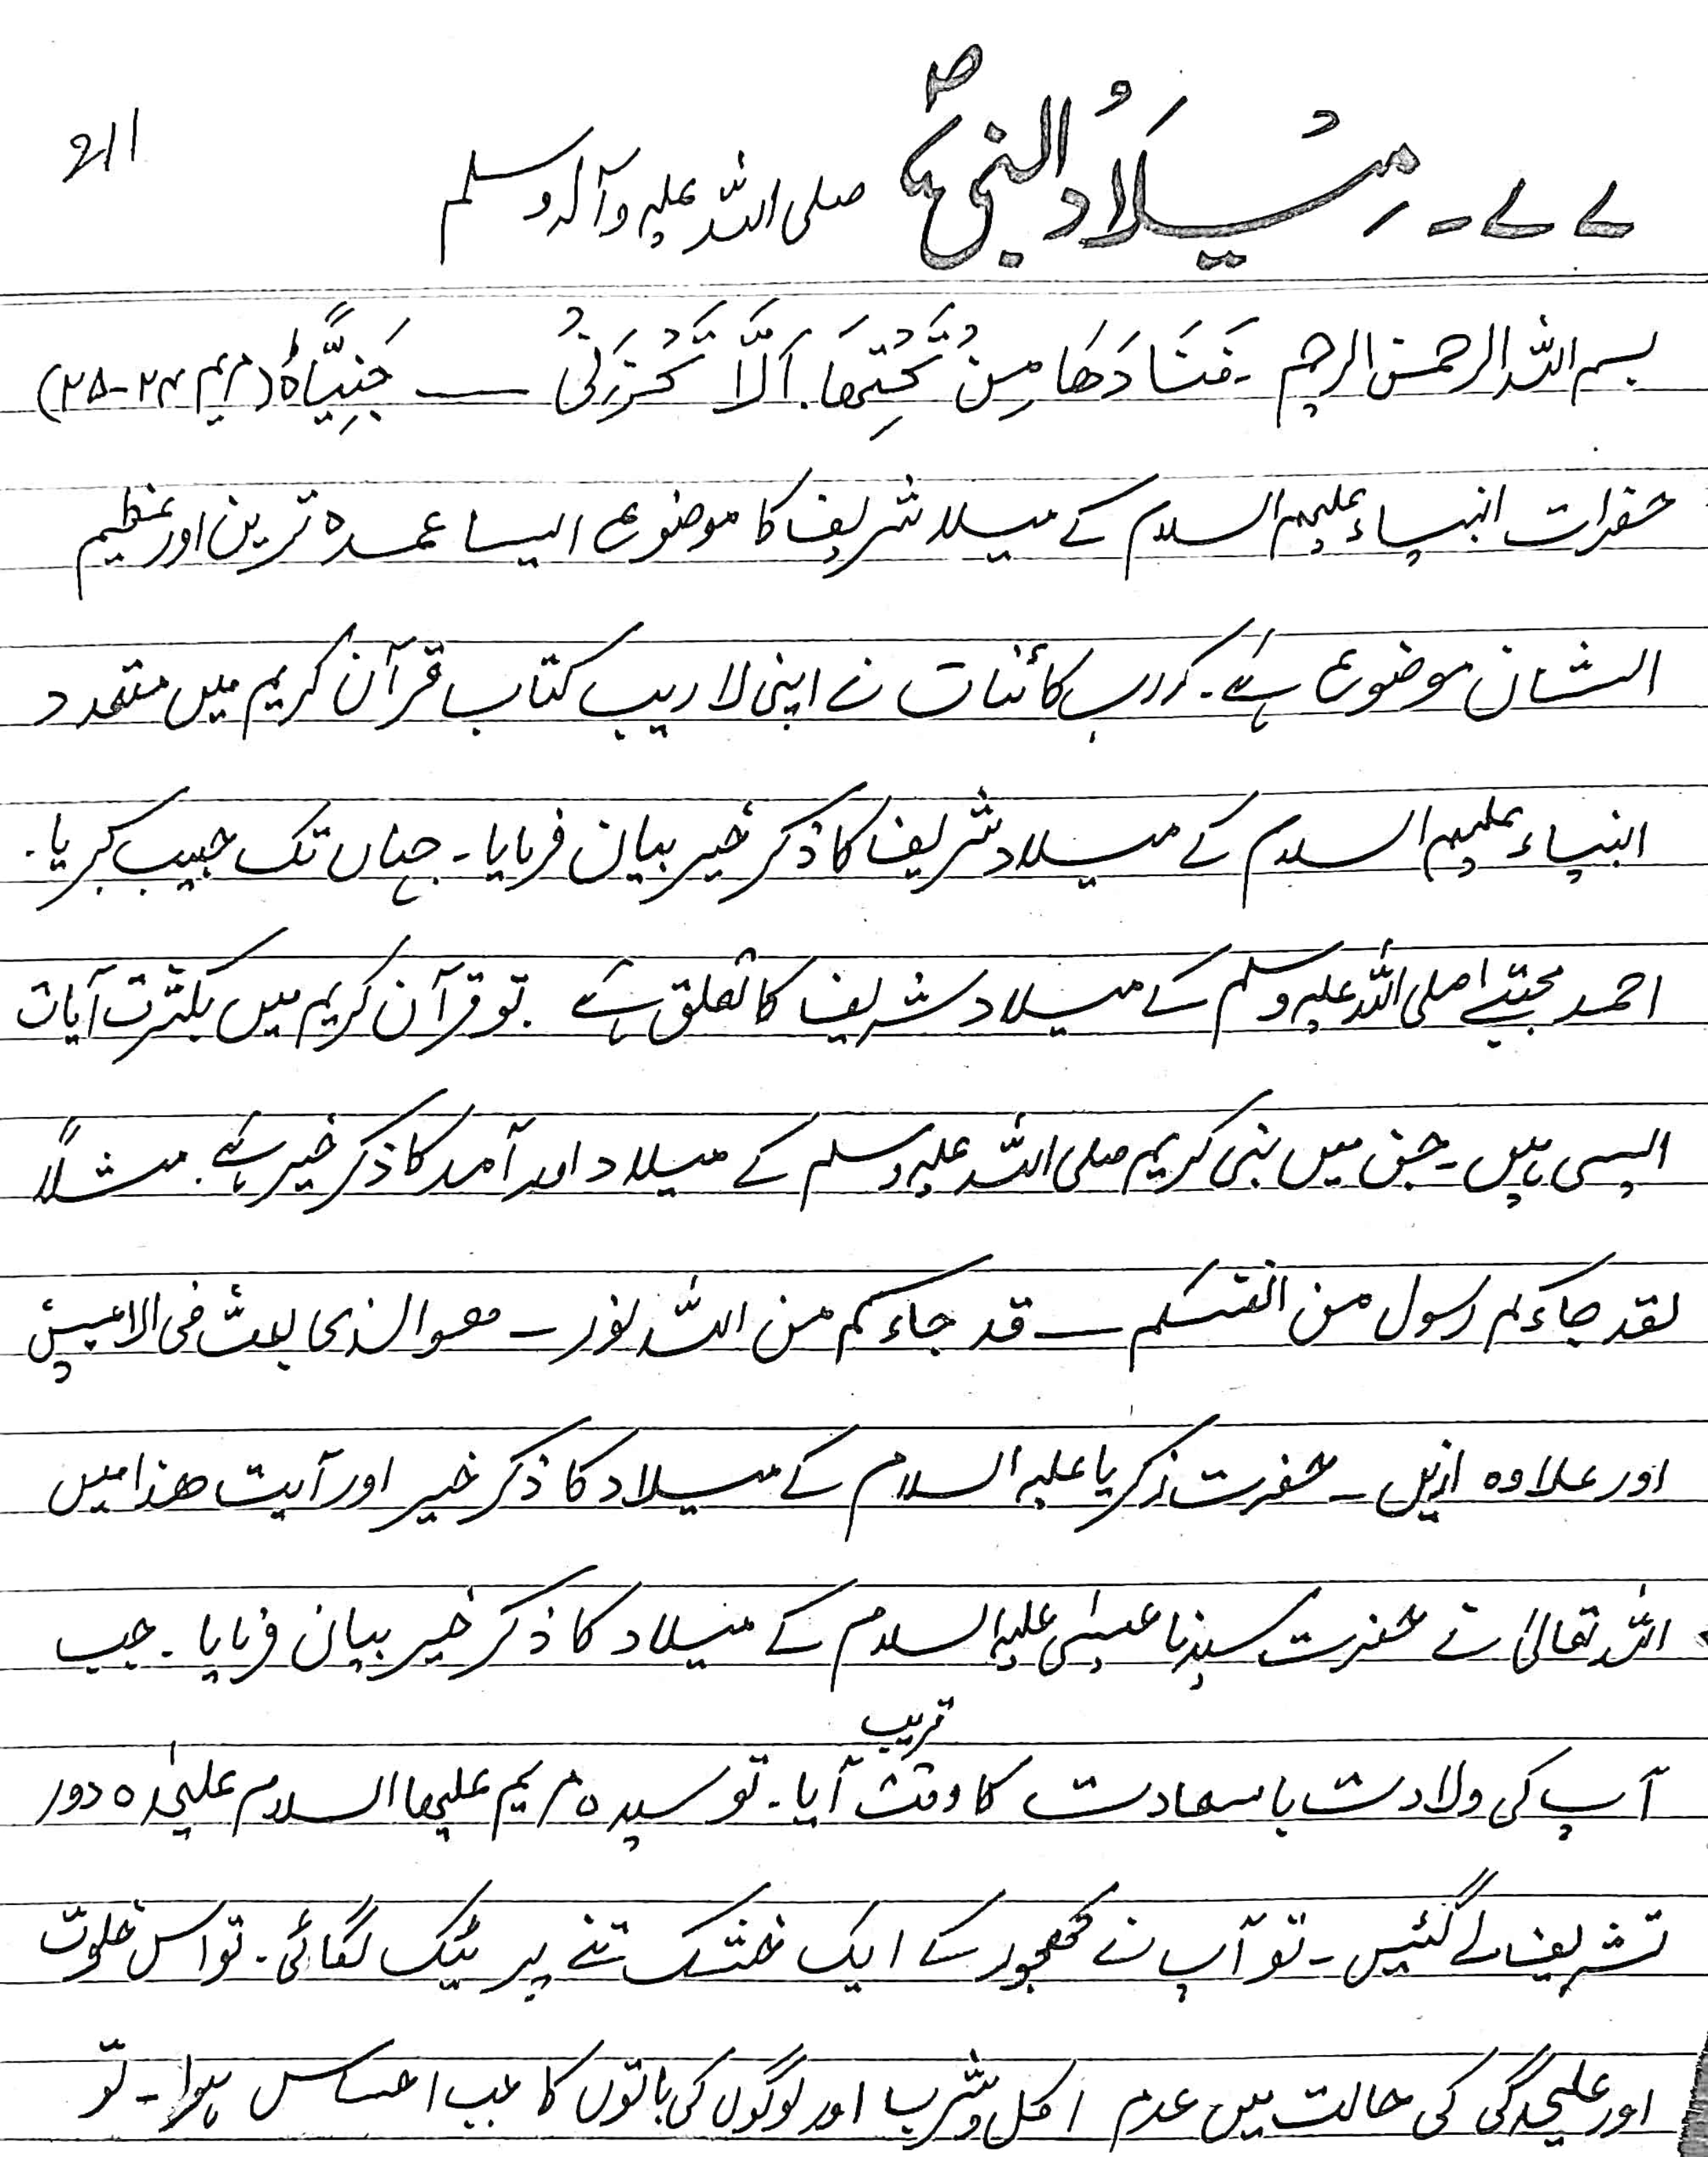 ۷۷۔ مِیْلَادُ النَّبِیِّ ؐ صلی اللہ علیہ وآلہ وسلم
بسم اللہ الرحمن الرحیم ۔ فَنَادٰھَا مِنْ تَحْتِھَا اَلَّا تَحْزَنِیْ ـــ جَنِیًّا ہ (مریم ۲۴-۲۵)
حضرات انبیاء علیہم السلام کے میلاد شریف کا موضوع ایسا عمدہ ترین اور عظیم
الشان موضوع ہے ۔ کہ رب کائنات نے اپنی لاریب کتاب قرآن کریم میں متعدد
انبیاء علیہم السلام کے میلاد شریف کا ذکر خیر بیان فرمایا ۔ جہاں تک حبیب کبریا ۔
احمد مجتبےٰ صلی اللہ علیہ وسلم کے میلاد شریف کا تعلق ہے ۔ تو قرآن کریم میں بکثرت آیات
ایسی ہیں ۔ جن میں نبی کریم صلی اللہ علیہ وسلم کے میلاد اور آمد کا ذکر خیر ہے ۔ مثلاً
لقد جاءکم رسول من انفسکم ـــ قد جاءکم من اللہ نور ـــ ھو الذی بعث فی الامیین
اور علاوہ ازیں ۔ حضرت زکریا علیہ السلام کے میلاد کا ذکر خیر اور آیت ھذا میں
اللہ تعالیٰ نے حضرت سیدنا عیسیٰ علیہ السلام کے میلاد کا ذکر خیر بیان فرمایا ۔ جب
آپ کی ولادت باسعادت کا وقت قریب آیا ۔ تو سیدہ مریم علیھا السلام علیحٰدہ دور
تشریف لے گئیں ۔ تو آپ نے کھجور کے ایک خشک تنے پر ٹیک لگائی ۔ تو اس خلوت
اور علیحدگی کی حالت میں عدم اکل و شرب اور لوگوں کی باتوں کا جب احساس ہوا ۔ تو